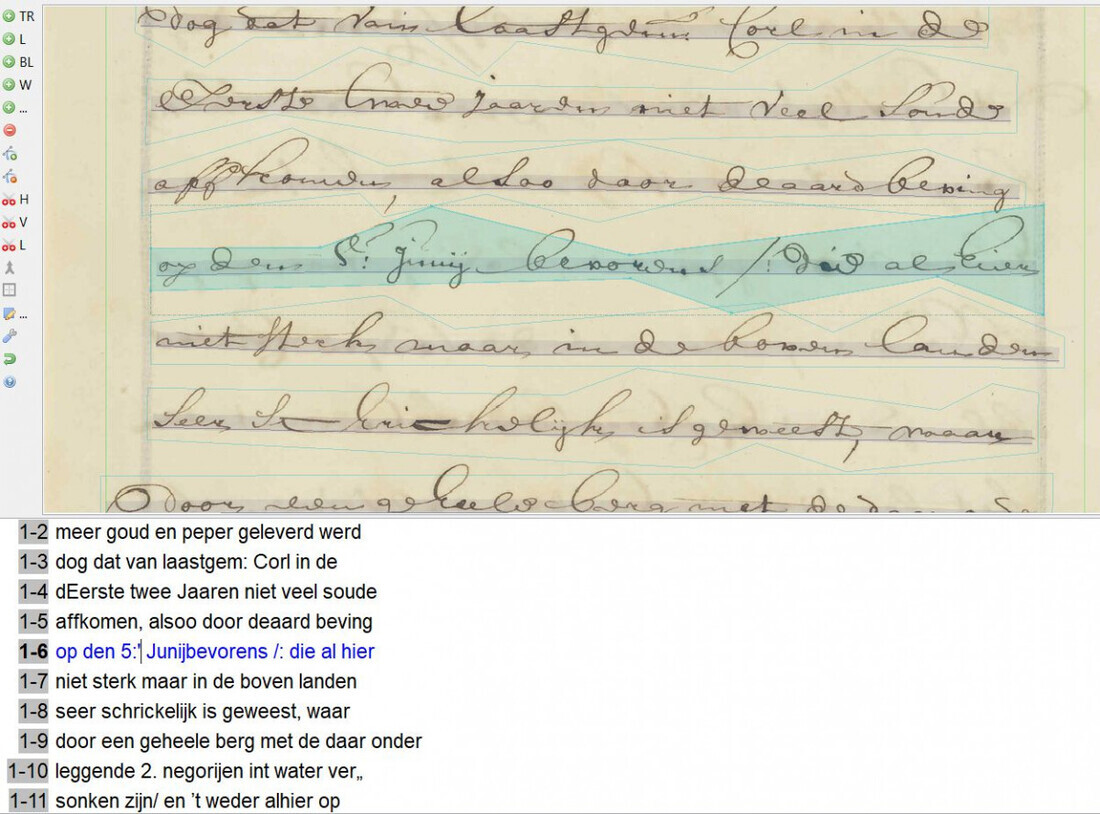 TR
L
BL
W
...
H
V
L
...
dog dat van laastgem: Corl in de
dEerste twee jaaren niet veel soude
affkomen, alsoo door deaard beving
op den 5:' Junij bevorens /: die al hier
niet sterk maar in de boven landen
seer schrickelijk is geweest, waar
door een geheele berg met de daar onder
1-2 meer goud en peper geleverd werd
1-3 dog dat van laastgem: Corl in de
1-4 dEerste twee Jaaren niet veel soude
1-5 affkomen, alsoo door deaard beving
1-6 op den 5:' Junijbevorens /: die al hier
1-7 niet sterk maar in de boven landen
1-8 seer schrickelijk is geweest, waar
1-9 door een geheele berg met de daar onder
1-10 leggende 2. negorijen int water ver„
1-11 sonken zijn/ en ’t weder alhier op